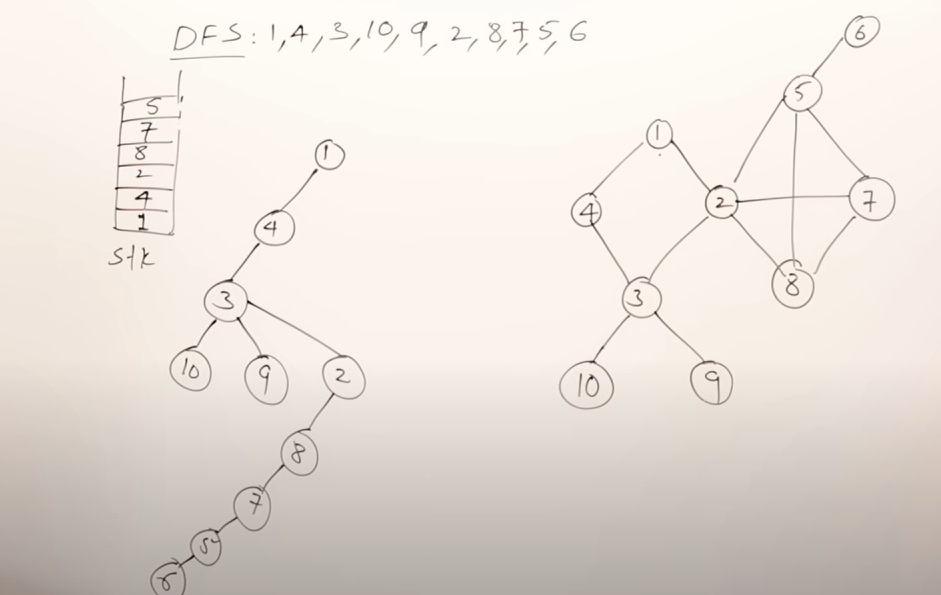 DFS: 1,4,3,10,9,2,8,7,5,6
5
7
8
2
4
1
stk
1
4
3
10
9
2
8
7
5
6
6
5
1
2
7
4
8
3
10
9